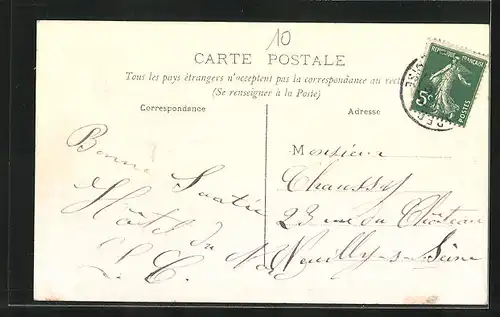 10
CARTE POSTALE
Tous les pays étrangers n'acceptent pas la correspondance au recto
(Se renseigner à la Poste)
Correspondance
Adresse
REPUBLIQUE FRANÇAISE
5c
POSTES
OISE
Bonne Santée
Hôtel du
L. C.
Monsieur
Chaussy
23 rue du Château
Neuilly-s-Seine